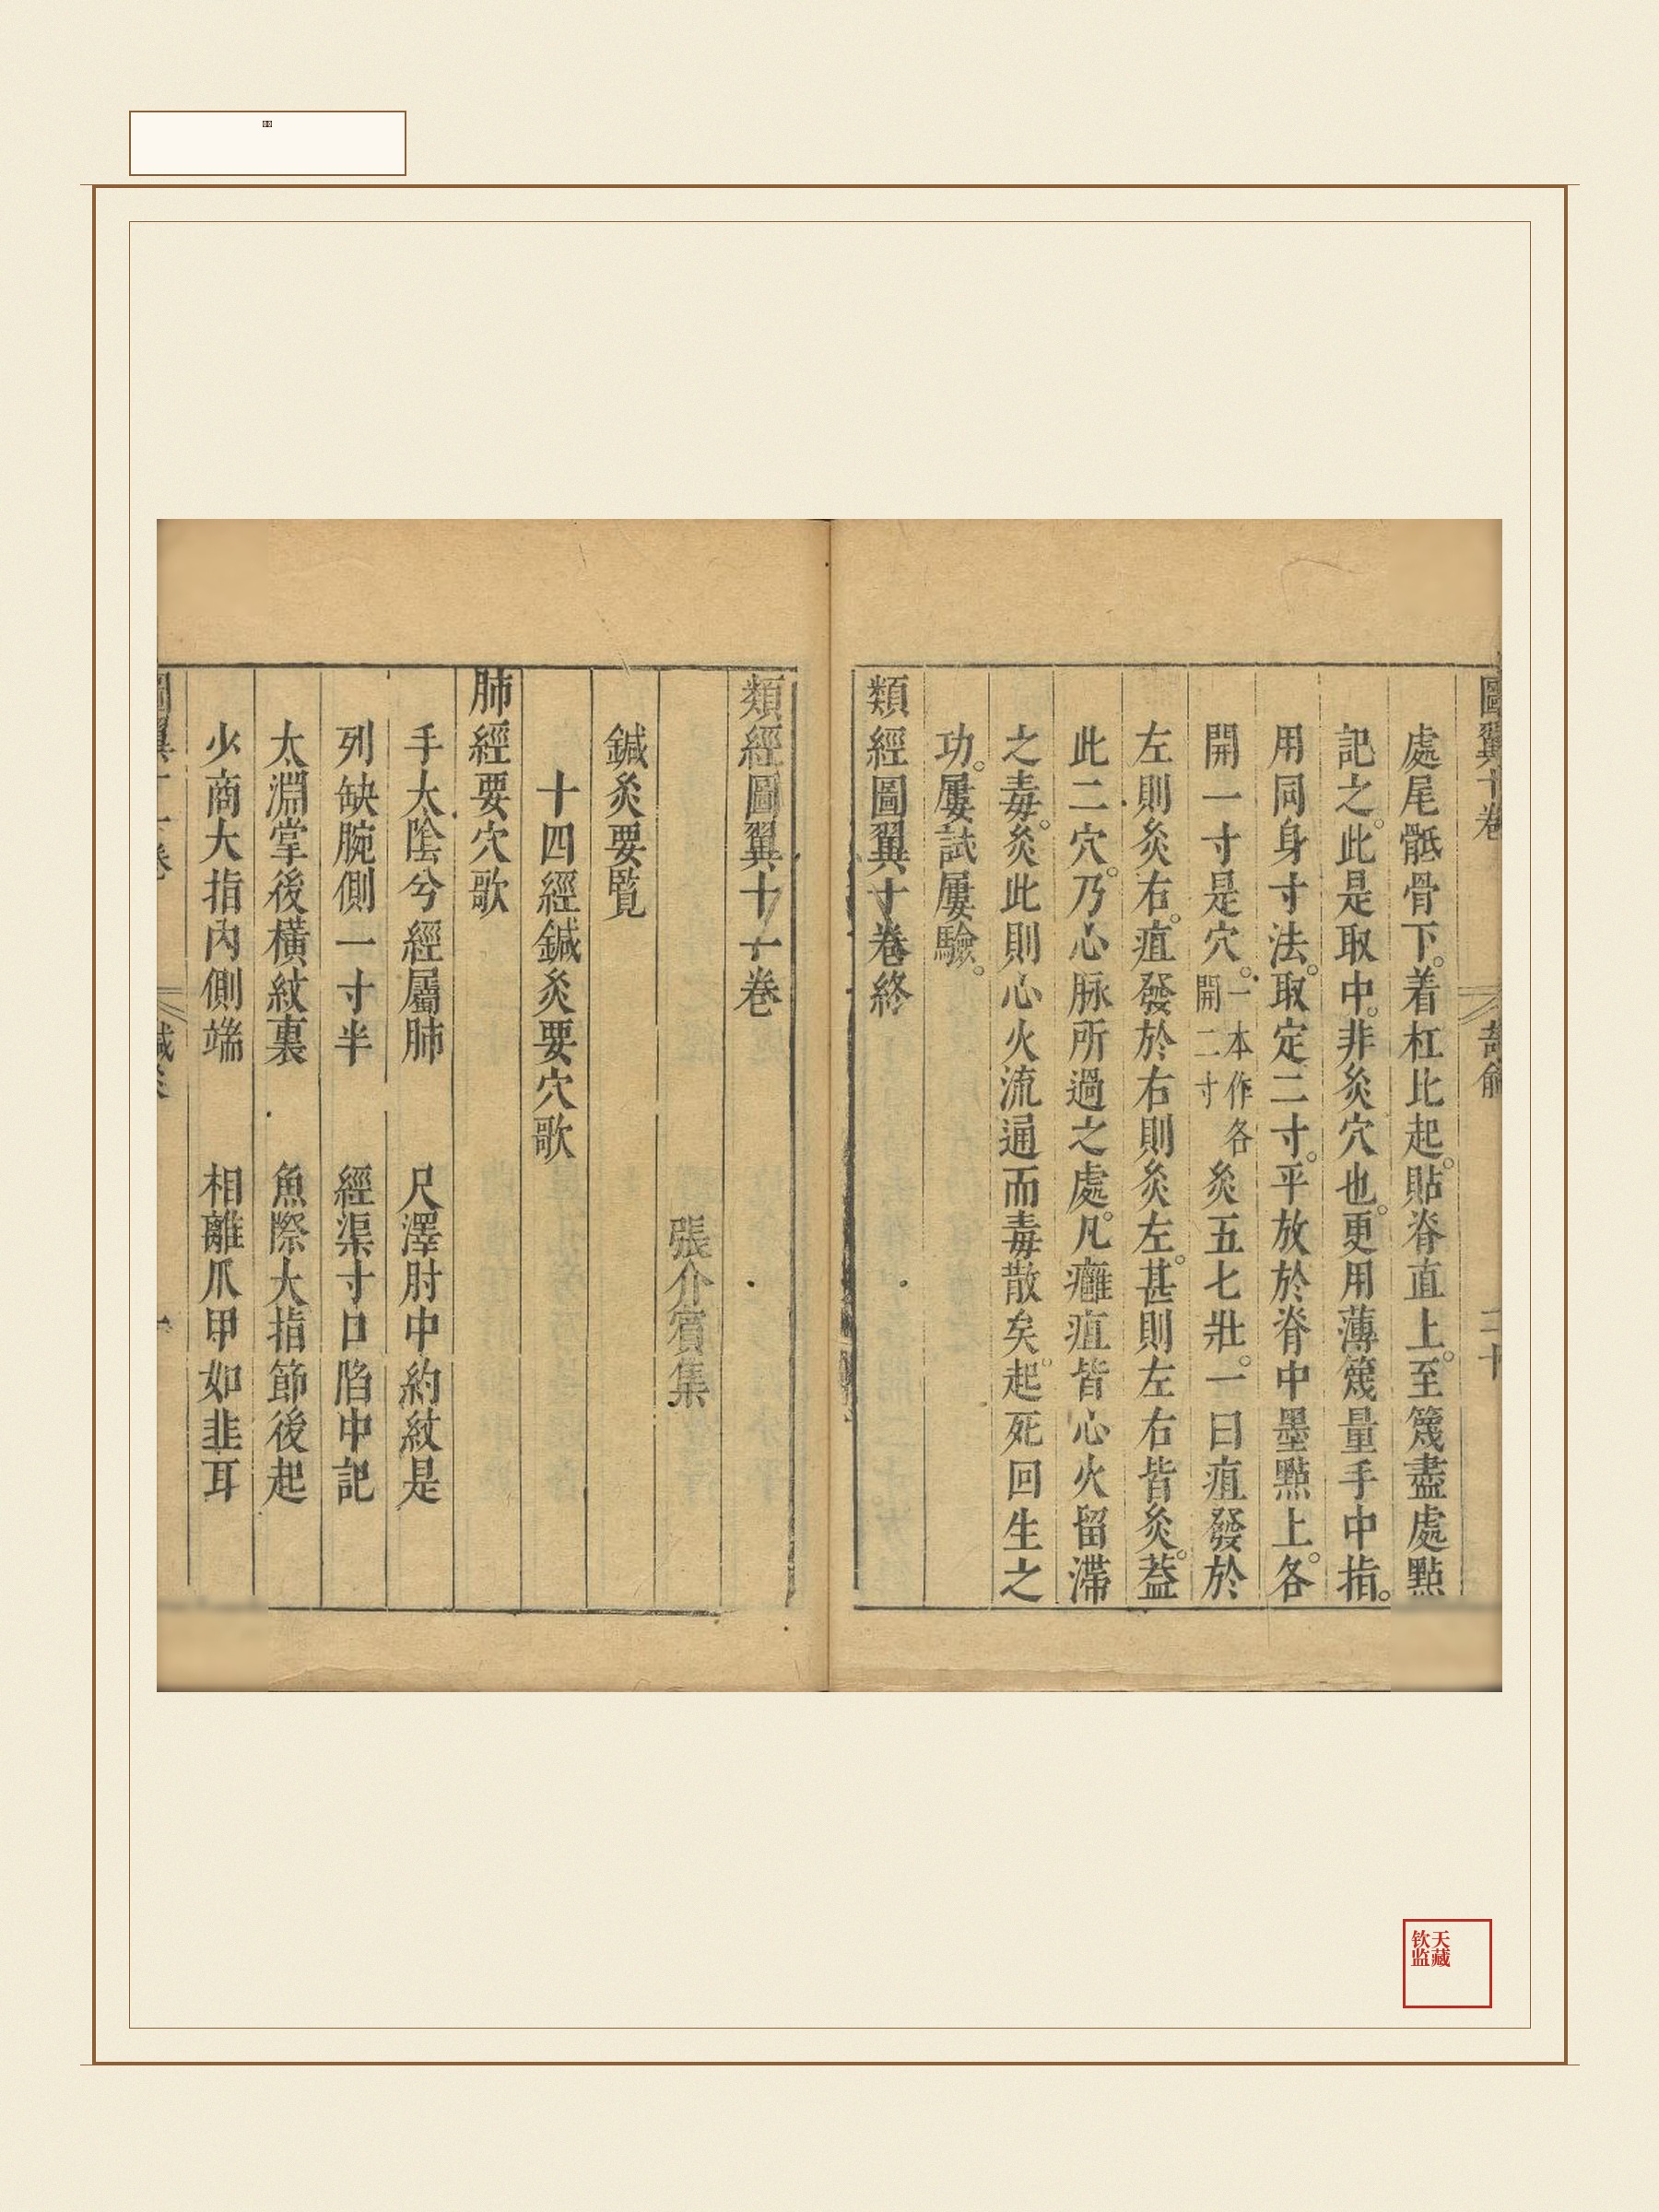 圖翼十卷 奇俞 二十
處尾骶骨下。着杠比起。貼脊直上。至篾盡處點
記之。此是取中。非灸穴也。更用薄篾量手中指。
用同身寸法。取定二寸。平放於脊中墨點上。各
開一寸是穴。一本作各開二寸灸五七壯。一曰疽發於
左則灸右。疽發於右則灸左。甚則左右皆灸。葢
此二穴。乃心脉所過之處。凡癰疽皆心火留滯
之毒。灸此則心火流通而毒散矣。起死回生之
功。屢試屢驗。
類經圖翼十卷終
類經圖翼十一卷
張介賓集
鍼灸要覧
十四經鍼灸要穴歌
肺經要穴歌
手太陰兮經屬肺 尺澤肘中約紋是
列缺腕側一寸半 經渠寸口陷中記
太淵掌後橫紋裏 魚際大指節後起
少商大指內側端 相離爪甲如韭耳
天藏
钦监